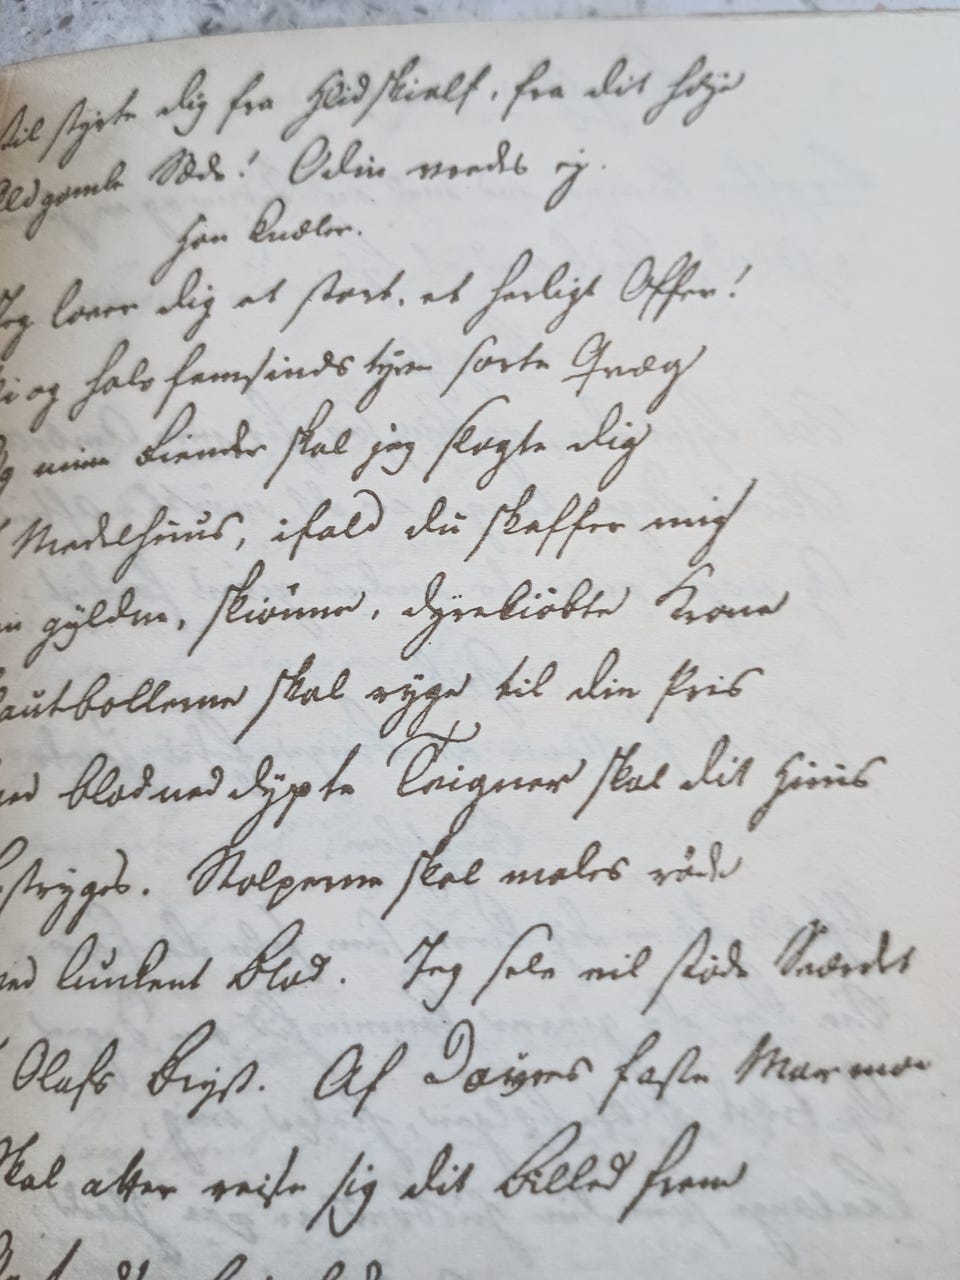 til styrte dig fra Hlidskialf, fra dit høje
ældgamle Sæde! Odin vredes ej.
Han knæler.
Jeg lover dig et stort, et herligt Offer!
og halv femsinds tyve sorte Qvæg
mine Fiender skal jeg slagte dig
Medelhuus, ifald du skaffer mig
gyldne, skiönne, dyrekiöbte Krone
skal ryge til din Priis
blodneddypte Teigner skal dit Huus
bestryges. Stolperne skal males röde
lunkent Blod. Jeg selv vil støde Sværdet
Olafs Bryst. Af Dovres faste Marmor
Skal atter reise sig dit Billed frem